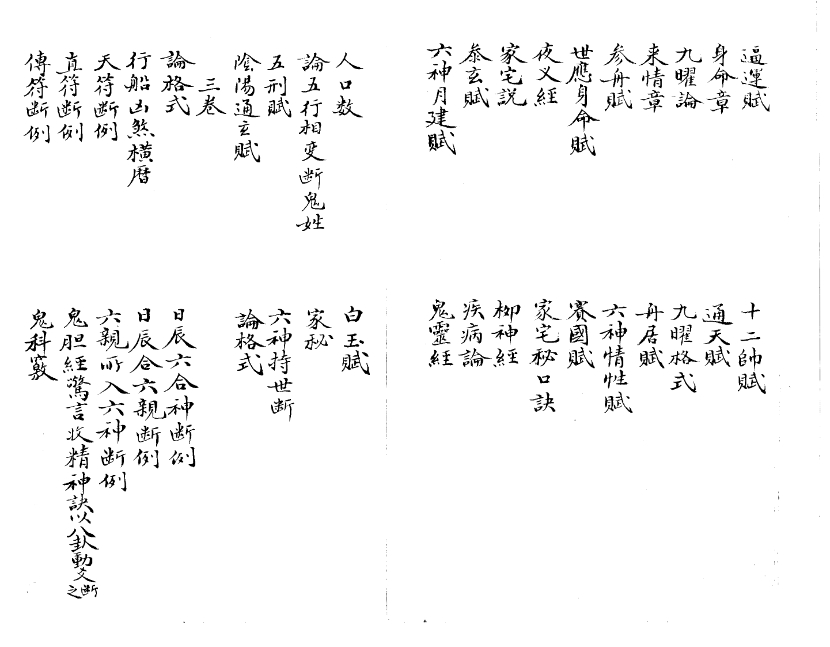 逼運賦
十二帥賦
身命章
通天賦
九曜論
九曜格式
来情章
舟居賦
参舟賦
六神情性賦
世應身命賦
賽國賦
夜义經
家宅秘口訣
家宅説
柳神經
叅玄賦
疾病論
六神月建賦
鬼靈經
人口数
白玉賦
論五行相变断鬼姓
家秘
五刑賦
六神持世断
陰陽通玄賦
論格式
三卷
論格式
日辰六合神断例
行船凶煞横曆
日辰合六親断例
天符断例
六親所入六神断例
直符断例
鬼胆經驚言收精神訣以八卦動爻断之
傳符断例
鬼科竅